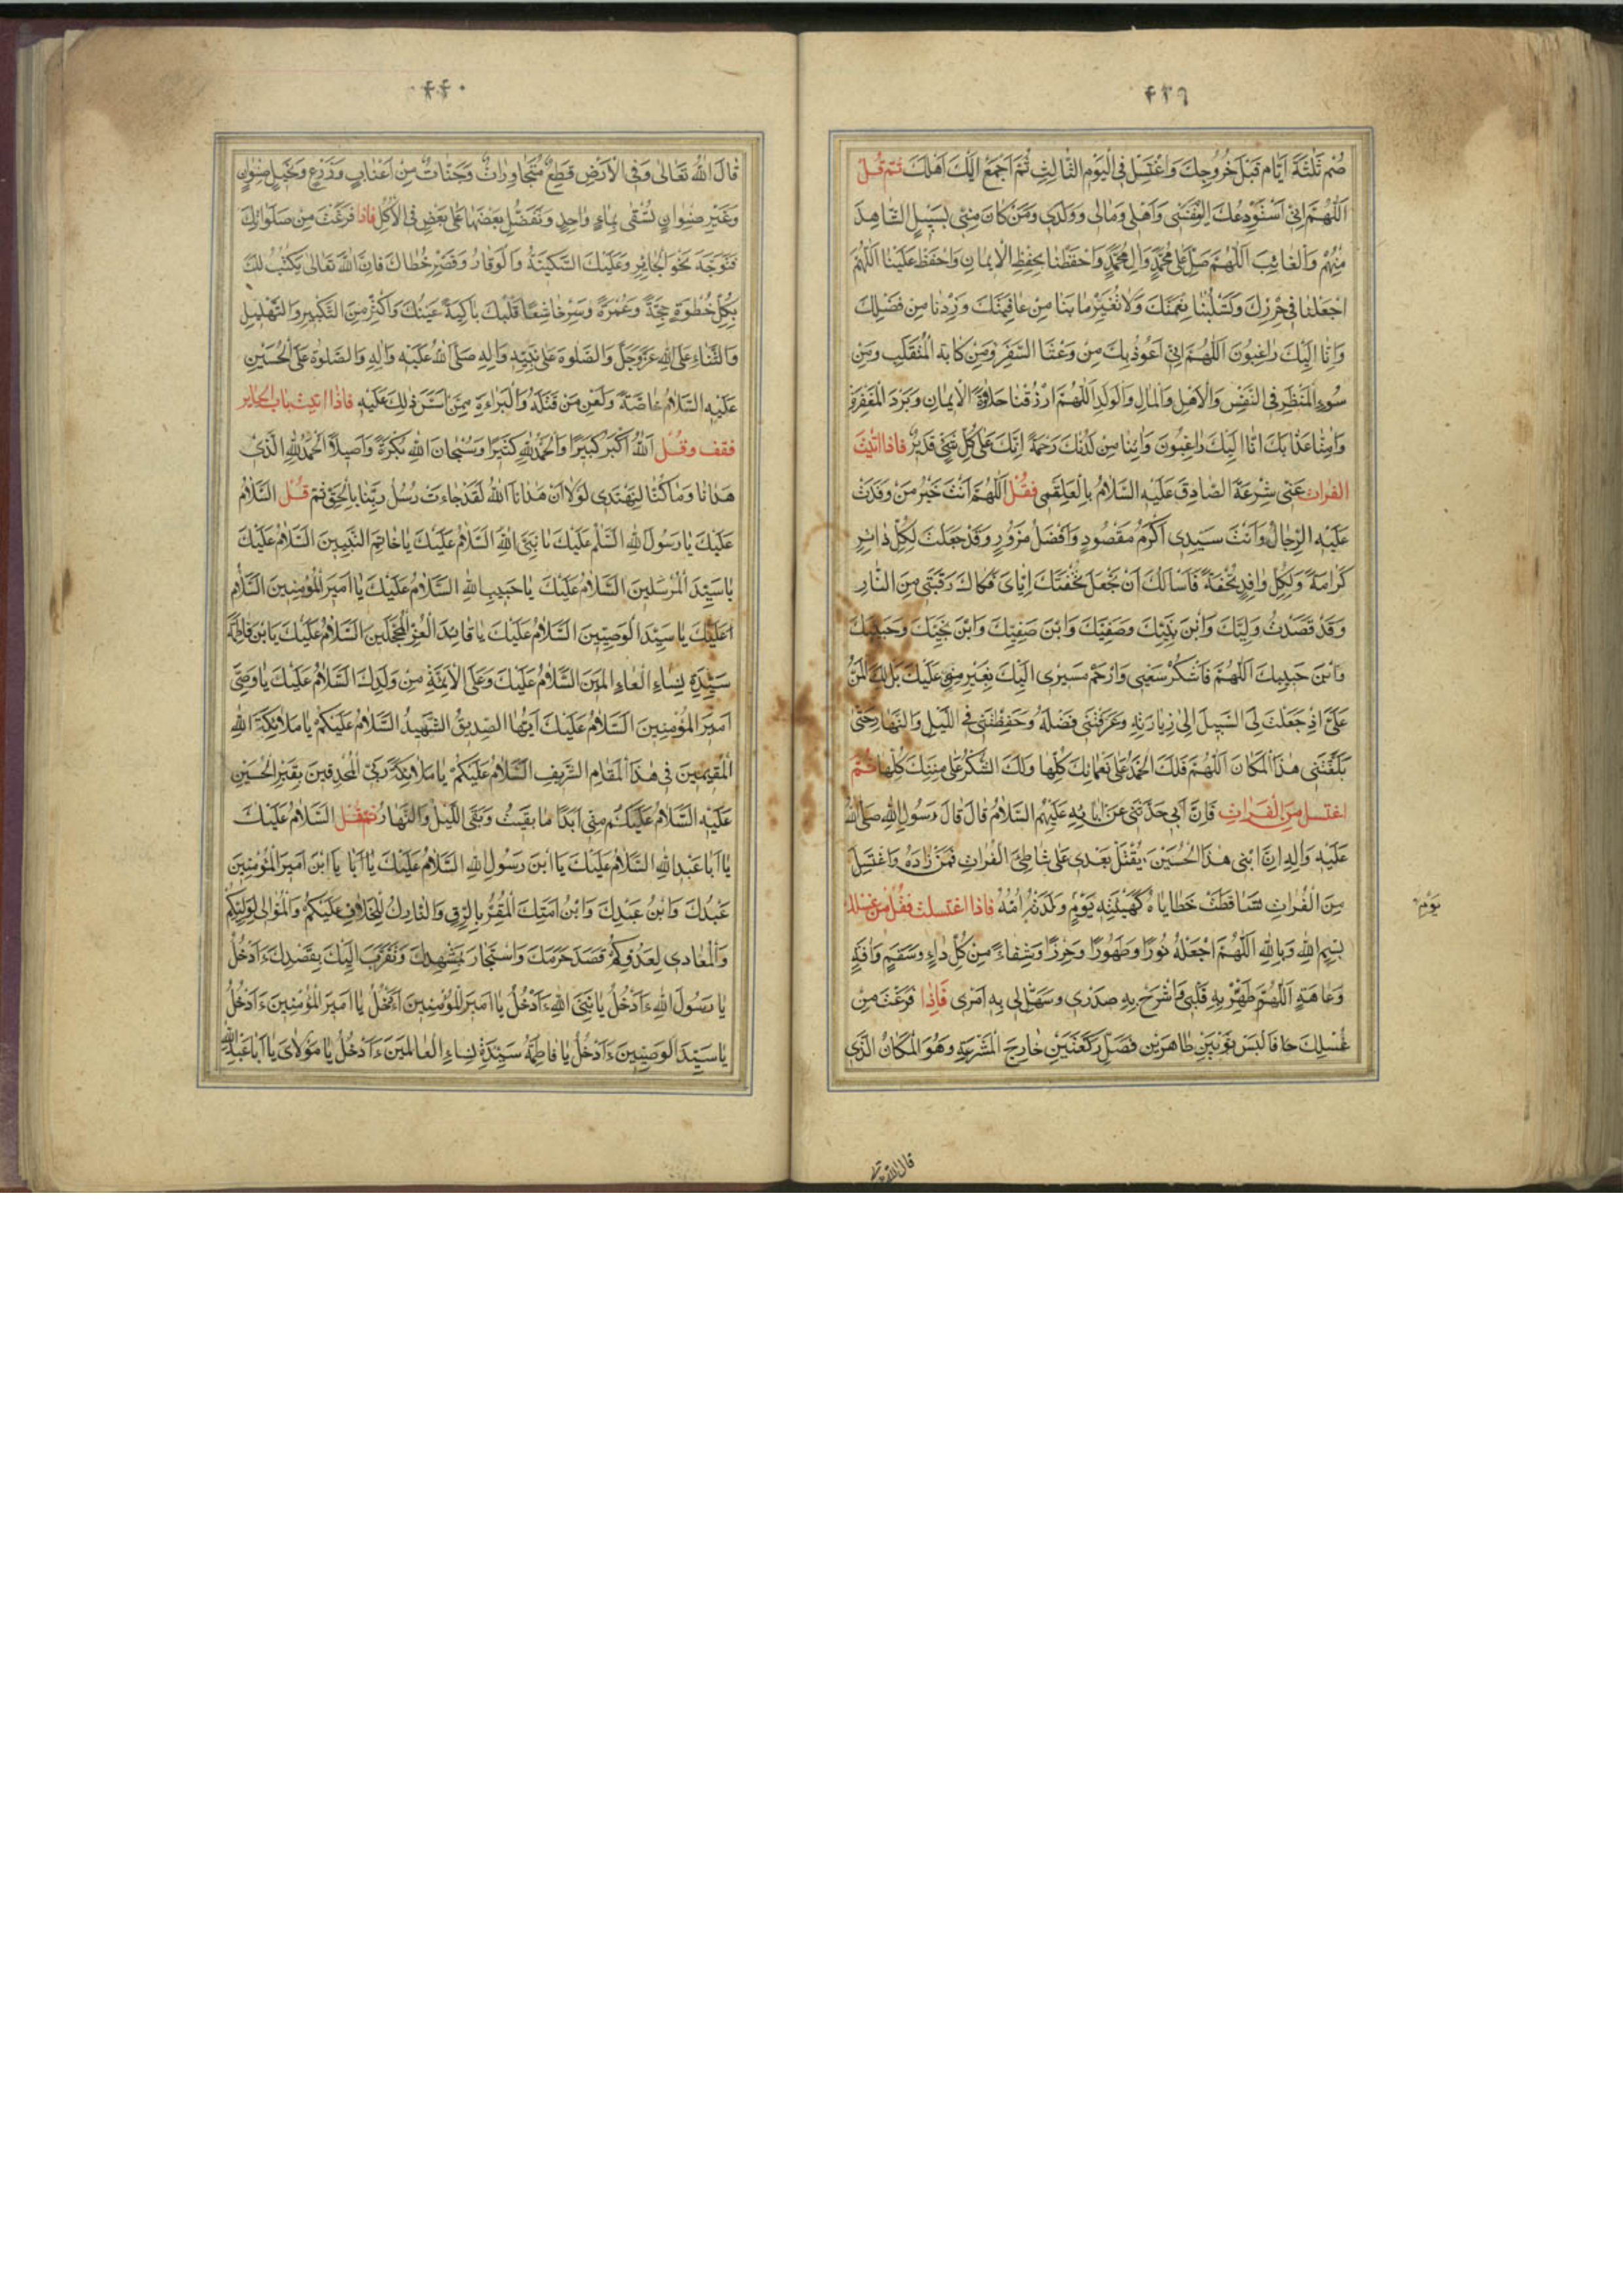 ٤٣٩
صُمْ ثَلٰثَةَ اَيّامٍ قَبْلَ خُرُوجِكَ وَاغْتَسِلْ فِى الْيَوْمِ الثّالِثِ ثُمَّ اجْمَعْ اِلَيْكَ اَهْلَكَ ثُمَّ قُلْ
اَللّٰهُمَّ اِنّى اَسْتَوْدِعُكَ الْيَوْمَ نَفْسى وَاَهْلى وَمالى وَوَلَدى وَمَنْ كانَ مِنّى بِسَبيلٍ الشّاهِدَ
مِنْهُمْ وَالْغائِبَ اَللّٰهُمَّ صَلِّ عَلى مُحَمَّدٍ وَالِ مُحَمَّدٍ وَاحْفَظْنا بِحِفْظِ الْايمانِ وَاحْفَظْ عَلَيْنا اَللّٰهُمَّ
اجْعَلْنا فى حِرْزِكَ وَلاتَسْلُبْنا نِعْمَتَكَ وَلاتُغَيِّرْ ما بِنا مِنْ عافِيَتِكَ وَزِدْنا مِنْ فَضْلِكَ
وَاِنّا اِلَيْكَ راغِبُونَ اَللّٰهُمَّ اِنّى اَعُوذُ بِكَ مِنْ وَعْثاءِ السَّفَرِ وَمِنْ كابَةِ الْمُنْقَلَبِ وَمِنْ
سُوءِ الْمَنْظَرِ فِى النَّفْسِ وَالْاَهْلِ وَالْمالِ وَالْوَلَدِ اَللّٰهُمَّ ارْزُقْنا حَلاوَةَ الْايمانِ وَبَرْدَ الْمَغْفِرَةِ
وَامِنّا عَذابَكَ اِنّا اِلَيْكَ راغِبُونَ وَاتِنا مِنْ لَدُنْكَ رَحْمَةً اِنَّكَ عَلى كُلِّ شَىْءٍ قَديرٌ فاذا اتيتَ
الفرات عَنى شِرْعَةَ الصّادِقِ عَلَيْهِ السَّلامُ بِالْعَلْقَمى فَقُلْ اَللّٰهُمَّ اَنْتَ خَيْرُ مَنْ وَفَدَتْ
عَلَيْهِ الرِّجالُ وَاَنْتَ سَيِّدى اَكْرَمُ مَقْصُودٍ وَاَفْضَلُ مَزُورٍ وَقَدْ جَعَلْتَ لِكُلِّ زائِرٍ
كَرامَةً وَلِكُلِّ وافِدٍ تُحْفَةً فَاَسْاَلُكَ اَنْ تَجْعَلَ تُحْفَتَكَ اِيّاىَ فَكاكَ رَقَبَتى مِنَ النّارِ
وَقَدْ قَصَدْتُ وَلِيَّكَ وَابْنَ نَبِيِّكَ وَصَفِيَّكَ وَابْنَ صَفِيِّكَ وَابْنَ نَجِيِّكَ وَحَبيبَكَ
وَابْنَ حَبيبِكَ اَللّٰهُمَّ فَاشْكُرْ سَعْيى وَارْحَمْ مَسيرى اِلَيْكَ بِغَيْرِ مَنٍّ عَلَيْكَ بَلْ لَكَ الْمَنُّ
عَلَىَّ اِذْ جَعَلْتَ لِىَ السَّبيلَ اِلى زِيارَتِهِ وَعَرَّفْتَنى فَضْلَهُ وَحَفِظْتَنى فِى اللَّيْلِ وَالنَّهارِ حَتّى
بَلَّغْتَنى هذَا الْمَكانَ اَللّٰهُمَّ فَلَكَ الْحَمْدُ عَلى نَعْمائِكَ كُلِّها وَلَكَ الشُّكْرُ عَلى مِنَنِكَ كُلِّها ثُمَّ
اغتسل مِنَ الْفُراتِ فَاِنَّ اَبى حَدَّثَنى عَنْ ابائِهِ عَلَيْهِمُ السَّلامُ قالَ قالَ رَسُولُ اللهِ صَلَّى اللهُ
عَلَيْهِ وَالِهِ اِنَّ ابْنى هذَا الْحُسَيْنَ يُقْتَلُ بَعْدى عَلى شاطِئِ الْفُراتِ فَمَنْ زارَهُ وَاغْتَسَلَ
مِنَ الْفُراتِ تَساقَطَتْ خَطاياهُ كَهَيْئَتِهِ يَوْمٍ وَلَدَتْهُ اُمُّهُ فاذا اغتسلت فقُلْ فى غسلك
يَوْمِ
بِسْمِ اللهِ وَبِاللهِ اَللّٰهُمَّ اجْعَلْهُ نُورًا وَطَهُورًا وَحِرْزًا وَشِفاءً مِنْ كُلِّ داءٍ وَسُقْمٍ وَافَةٍ
وَعاهَةٍ اَللّٰهُمَّ طَهِّرْ بِهِ قَلْبى وَاشْرَحْ بِهِ صَدْرى وَسَهِّلْ لى بِهِ اَمْرى فَاِذا فَرَغْتَ مِنْ
غُسْلِكَ فَالْبَسْ ثَوْبَيْنِ طاهِرَيْنِ فَصَلِّ رَكْعَتَيْنِ خارِجَ الْمَشْرَعَةِ وَهُوَ الْمَكانُ الَّذى
قال الله تعالى
٤٤٠
قالَ اللهُ تَعالى وَفِى الْاَرْضِ قِطَعٌ مُتَجاوِراتٌ وَجَنّاتٌ مِنْ اَعْنابٍ وَزَرْعٍ وَنَخيلٍ صِنْوانٍ
وَغَيْرِ صِنْوانٍ تُسْقى بِماءٍ واحِدٍ وَنُفَضِّلُ بَعْضَها عَلى بَعْضٍ فِى الْاُكُلِ فاذا فَرَغْتَ مِنْ صَلَواتِكَ
فَتَوَجَّهْ نَحْوَ الْحائِرِ وَعَلَيْكَ السَّكينَةُ وَالْوَقارُ وَقَصِّرْ خُطاكَ فَاِنَّ اللهَ تَعالى يَكْتُبُ لَكَ
بِكُلِّ خُطْوَةٍ حِجَّةً وَعُمْرَةً وَسِرْ خاشِعًا قَلْبُكَ باكِيَةً عَيْنُكَ وَاَكْثِرْ مِنَ التَّكْبيرِ وَالتَّهْليلِ
وَالثَّناءِ عَلَى اللهِ عَزَّوَجَلَّ وَالصَّلوةِ عَلى نَبِيِّهِ وَالِهِ صَلَّى اللهُ عَلَيْهِ وَالِهِ وَالصَّلوةِ عَلَى الْحُسَيْنِ
عَلَيْهِ السَّلامُ خاصَّةً وَلَعْنِ مَنْ قَتَلَهُ وَالْبَراءَةِ مِمَّنْ اَسَّسَ ذلِكَ عَلَيْهِ فاذا اتيت باب الحاير
فقف وقُلْ اَللهُ اَكْبَرُ كَبيرًا وَالْحَمْدُ لِلّهِ كَثيرًا وَسُبْحانَ اللهِ بُكْرَةً وَاَصيلًا اَلْحَمْدُ لِلّهِ الَّذى
هَدانا وَما كُنّا لِنَهْتَدِىَ لَوْلا اَنْ هَدانَا اللهُ لَقَدْ جاءَتْ رُسُلُ رَبِّنا بِالْحَقِّ ثُمَّ قُلْ السَّلامُ
عَلَيْكَ يا رَسُولَ اللهِ السَّلٰمُ عَلَيْكَ يا نَبِىَّ اللهِ السَّلامُ عَلَيْكَ يا خاتَمَ النَّبِيّينَ السَّلامُ عَلَيْكَ
يا سَيِّدَ الْمُرْسَلينَ السَّلامُ عَلَيْكَ يا حَبيبَ اللهِ السَّلامُ عَلَيْكَ يا اَميرَ الْمُؤْمِنينَ السَّلامُ
عَلَيْكَ يا سَيِّدَ الْوَصِيّينَ السَّلامُ عَلَيْكَ يا قائِدَ الْغُرِّ الْمُحَجَّلينَ السَّلامُ عَلَيْكَ يَا بْنَ فاطِمَةَ
سَيِّدَةِ نِساءِ الْعالَمينَ السَّلامُ عَلَيْكَ وَعَلَى الْاَئِمَّةِ مِنْ وَلَدِكَ السَّلامُ عَلَيْكَ يا وَصِىَّ
اَميرِ الْمُؤْمِنينَ السَّلامُ عَلَيْكَ اَيُّهَا الصِّدّيقُ الشَّهيدُ السَّلامُ عَلَيْكُمْ يا مَلائِكَةَ اللهِ
الْمُقيمينَ فى هذَا الْمَقامِ الشَّريفِ السَّلامُ عَلَيْكُمْ يا مَلائِكَةَ رَبِّى الْمُحْدِقينَ بِقَبْرِ الْحُسَيْنِ
عَلَيْهِ السَّلامُ عَلَيْكُمْ مِنّى اَبَدًا ما بَقيتُ وَبَقِىَ اللَّيْلُ وَالنَّهارُ ثم تقُل السَّلامُ عَلَيْكَ
يا اَبا عَبْدِ اللهِ السَّلامُ عَلَيْكَ يَا ابْنَ رَسُولِ اللهِ السَّلامُ عَلَيْكَ يَا ابْنَ اَميرِ الْمُؤْمِنينَ
عَبْدُكَ وَابْنُ عَبْدِكَ وَابْنُ اَمَتِكَ الْمُقِرُّ بِالرِّقِّ وَالتّارِكُ لِلْخِلافِ عَلَيْكُمْ وَالْمُوالى لِوَلِيِّكُمْ
وَالْمُعادى لِعَدُوِّكُمْ قَصَدَ حَرَمَكَ وَاسْتَجارَ بِمَشْهَدِكَ وَتَقَرَّبَ اِلَيْكَ بِقَصْدِكَ ءَاَدْخُلُ
يا رَسُولَ اللهِ ءَاَدْخُلُ يا نَبِىَّ اللهِ ءَاَدْخُلُ يا اَميرَ الْمُؤْمِنينَ اَدْخُلُ يا اَميرَ الْمُؤْمِنينَ ءَاَدْخُلُ
يا سَيِّدَ الْوَصِيّينَ ءَاَدْخُلُ يا فاطِمَةُ سَيِّدَةَ نِساءِ الْعالَمينَ ءَاَدْخُلُ يا مَوْلاىَ يا اَبا عَبْدِ اللهِ